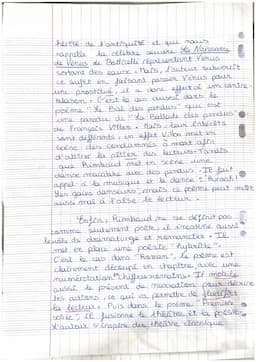 hérité de l'antiquité et qui nous
rappelle la célèbre œuvre La Naissance
de Vénus de Botticelli représentant Vénus
sortant des eaux. Mais, l'auteur
ce sujet en faisant passer Vénus pour
une prostituée, il a donc effectué un contre-
blason. C'est le cas aussi dans le
poème "Le Bal des pendus" qui est
une parodie de "La Ballade des pendus"
de François Villon. Mais, leurs intérêts
sont différents : en effet Villon met en
scène des condamnés à mort afin
d'attirer la pitié des lecteurs. Tandis
que Rimbaud met en scène une
danse macabre avec des pendus. Il fait
appel à la musique et la danse : "Hurrah!
Les gais danseurs", mais ce poème peut mettre
aussi mal à l'aise le lecteur.
Enfin, Rimbaud ne se définit pas
comme seulement poète, il incarne aussi
le rôle de dramaturge et romancier. Il
met en place une poésie "hybride".
C'est le cas dans "Roman", le poème est
clairement découpé en chapitre, avec une
numérotation chiffres romains. Il mobilise
aussi le présent de narration pour décrire
les actions, ce qui va permettre de
le lecteur. Puis dans le poème "Première
soirée", il fusionne le théâtre et la poésie,
l'auteur s'inspire des théâtre classique